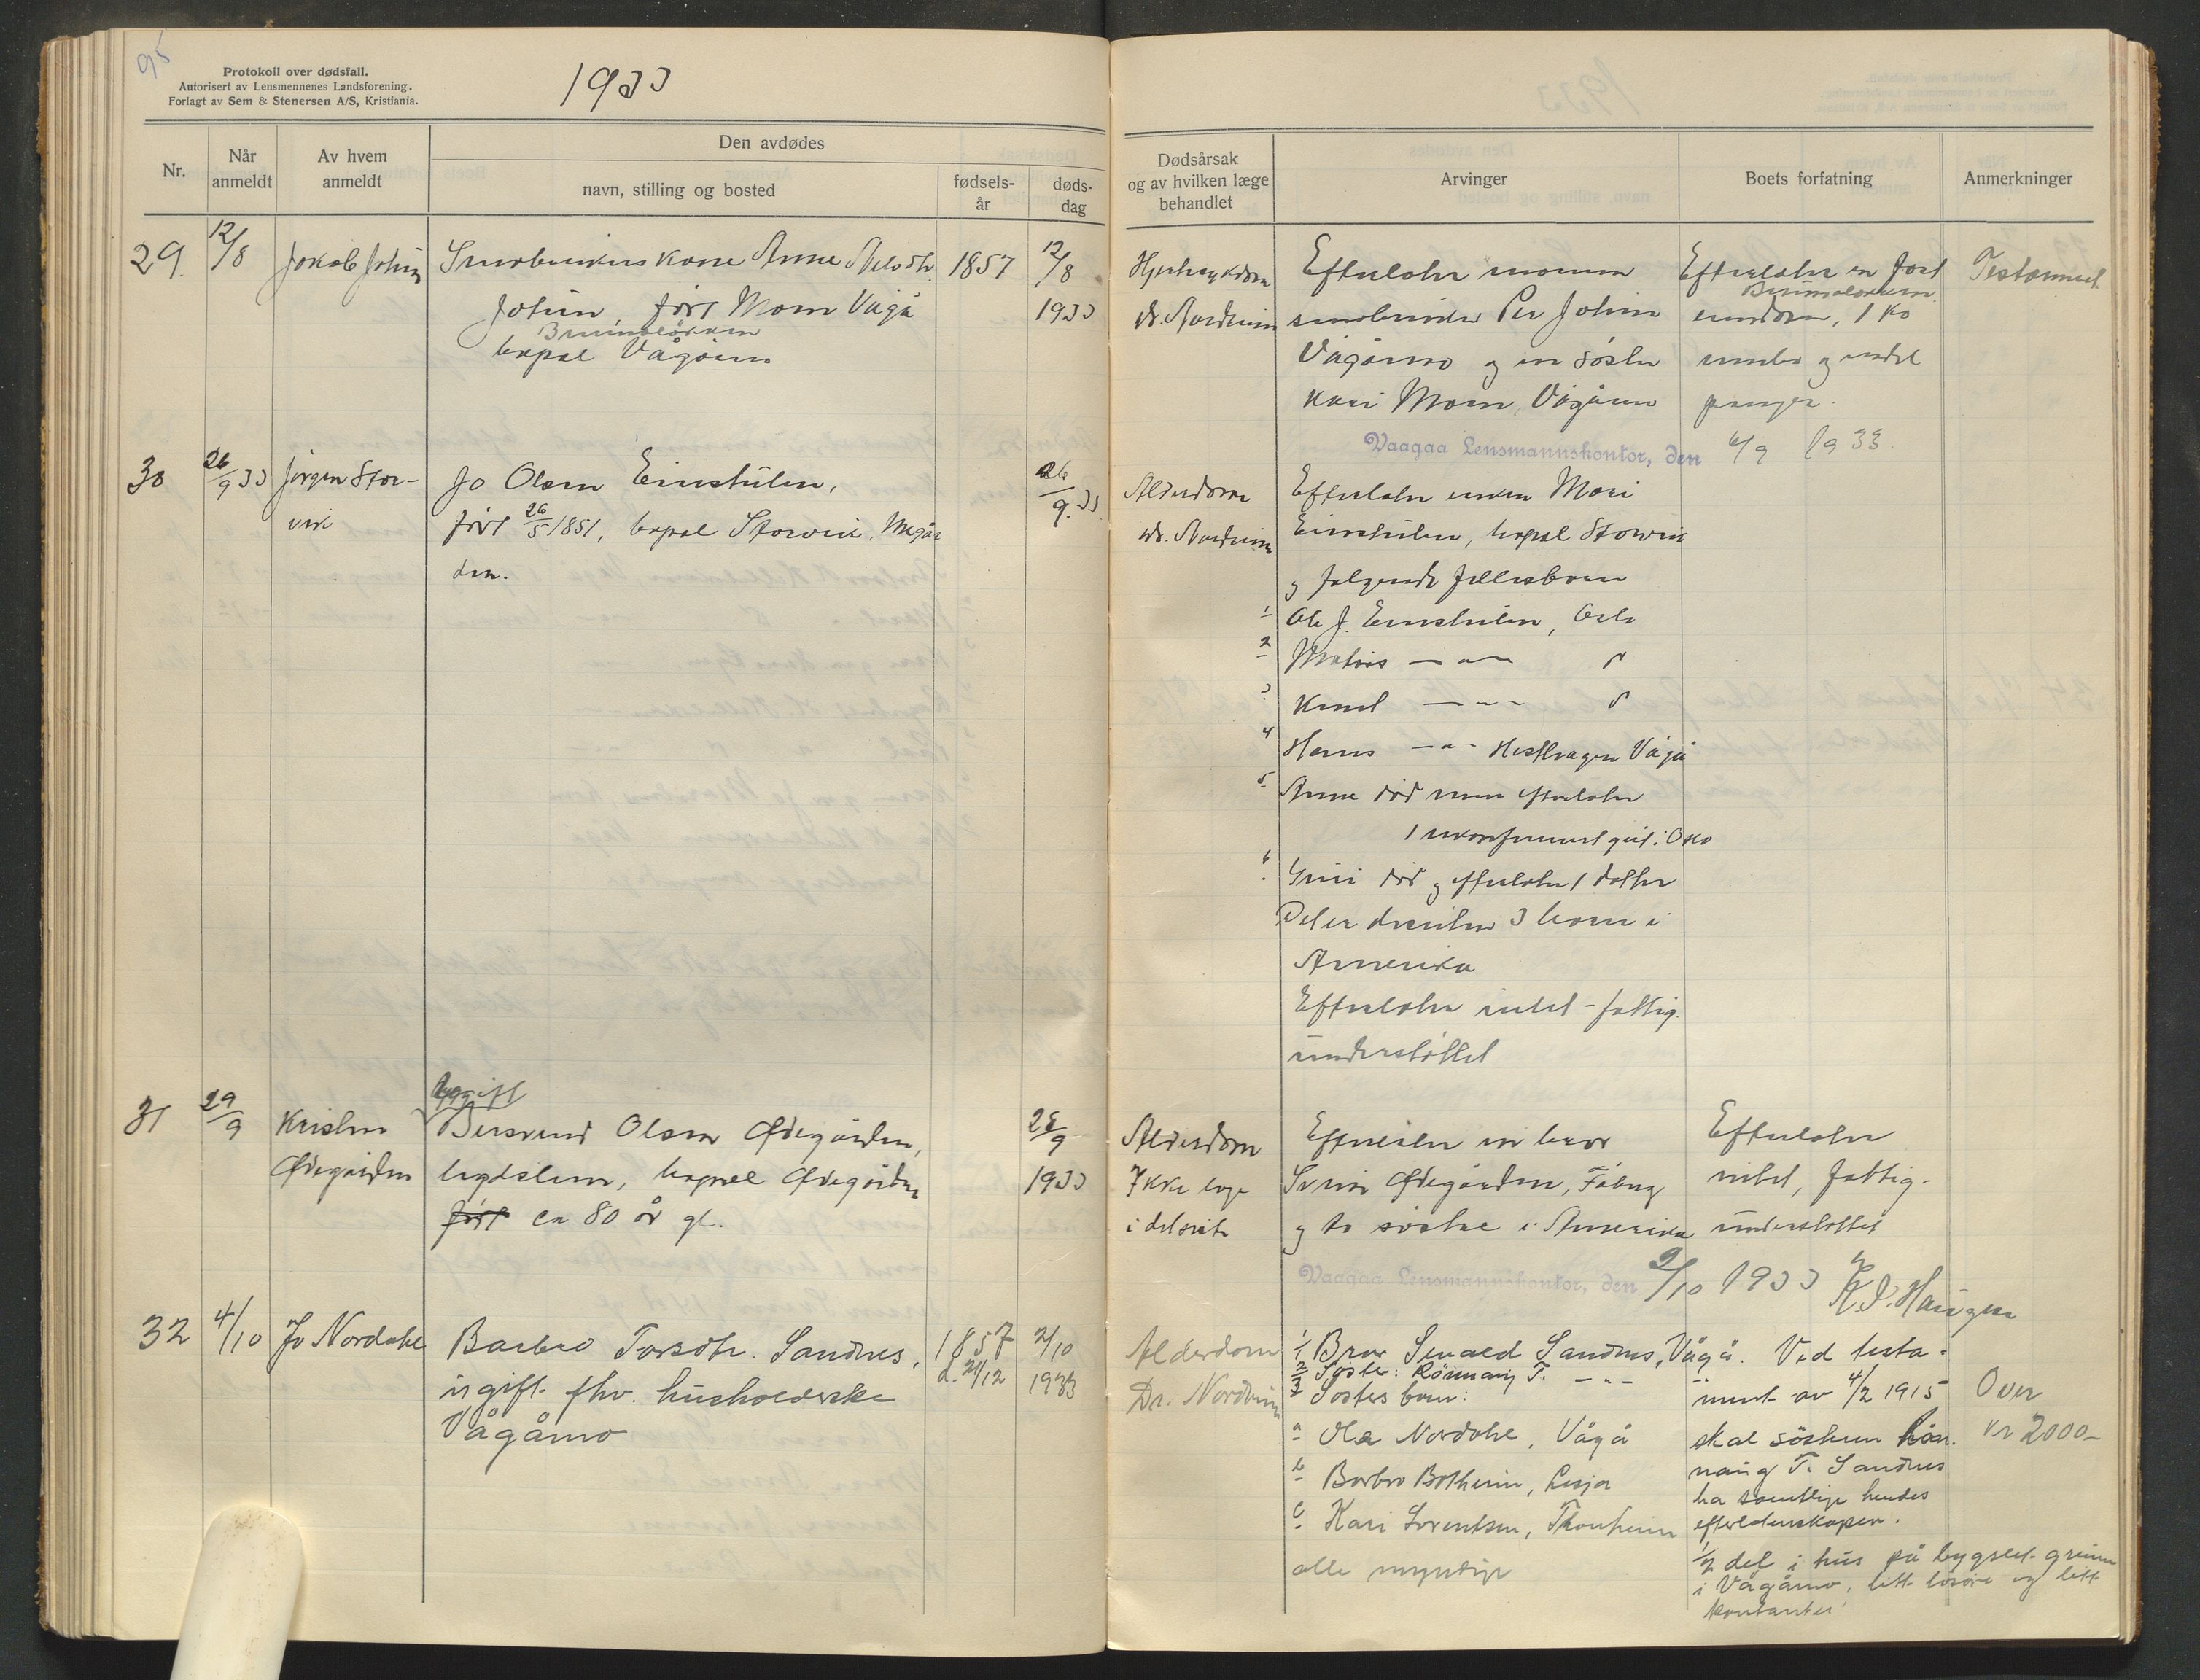 95
Protokoll over dødsfall.
Autorisert av Lensmennenes Landsforening.
Forlagt av Sem & Stenersen A/S, Kristiania.
1933
Nr.
Når anmeldt
Av hvem anmeldt
Den avdødes
navn, stilling og bosted
fødselsår
dødsdag
Dødsårsak og av hvilken læge behandlet
Arvinger
Boets forfatning
Anmerkninger
29.
12/8
Jakob
Småbrukers kone Anne Nilsdtr.
født Moen Vågå
bopæl Vågåmo
1857
12/8
1933
Hjertesykdom
dr. Nordheim
Efterlater mannen
småbruker Per
Vågåmo og en søster
Kari Moen, Vågåmo
Efterlater en fast
eiendom, 1 ko
innbo og endel
penger.
Testament
Vaagaa Lensmannskontor, den 6/9 1933.
30
26/9 33
Jørgen Stor-
vik
Jo Olsen Einstulen,
født 26/5 1851, bopæl Storvik,
26/9.33
Alderdom
dr. Nordheim
Efterlater enken Mari
Einstulen, bopæl Storvik
og følgende fellesbarn
1 Ole J. Einstulen, Oslo
2 Mathias — " — d
3 Knut — " — d
4 Hans — " — Vågå
5 Anne død men efterlater
1 ukonfirmert gut i Oslo
6 Guri død og efterlater 1 datter
Det er desuten 3 barn i
Amerika
Efterlater intet - fattig-
understøttet
31
29/9
Kristen
Ødegården
Ugift
Olsen Ødegården,
legdslem, bopæl Ødegården
født ca 80 år gl.
28/9
1933
Alderdom
Ikke læge
i det siste
Efterlater en bror
Svein Ødegården, Fåberg
og to søstre i Amerika
Efterlater
intet, fattig-
understøttet
Vaagaa Lensmannskontor, den 9/10 1933
K. P. Haugen
32
4/10
Jo Nordahl
Barbro Torsdtr. Sandnes,
ugift fhv. husholderske
Vågåmo
1857
d. 21/12
2/10
1933
Alderdom
Dr. Nordheim
1/ Bror Sandnes, Vågå.
2 Søster: Rønnaug T. — " —
3 Søsters barn:
a Ola Nordahl, Vågå
b Barbro Botheim, Lesja
c Kari Lorentsen, Trondheim
alle myndige
Ved testa-
ment av 4/2 1915
skal søsteren Røn-
naug T. Sandnes
ha samtlige hendes
efterladenskaper.
1/2 del i hus på bygslet grunn
i Vågåmo, litt løsøre og litt
kontanter
Over
kr 2000-